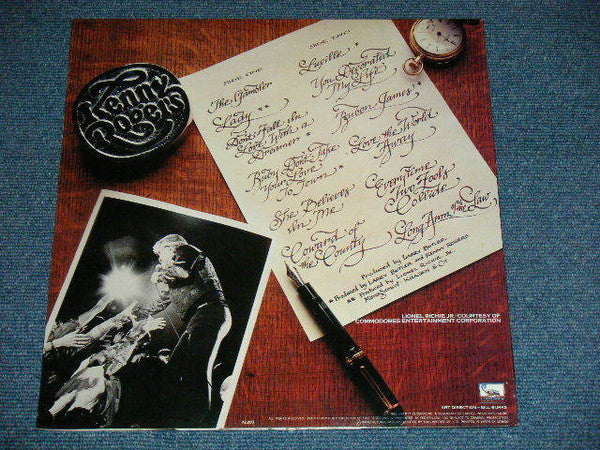 Kenny
Rogers
SIDE ONE
The Gambler
Lady **
Don't Fall In
Love With a
Dreamer *
Ruby Don't Take
Your Love
To Town
She Believes
In Me
Coward of
the County
SIDE TWO
Lucille
You Decorated
My Life
Reuben James
Love the World
Away
Everytime
Two Fools
Collide
Long Arm of the Law
Produced by Larry Butler
* Produced by Larry Butler and Kenny Rogers
** Produced by Lionel Richie, Jr.
Management: Kragen & Co.
LIONEL RICHIE JR./COURTESY OF
COMMODORES ENTERTAINMENT CORPORATION
ART DIRECTION - BILL BURKS